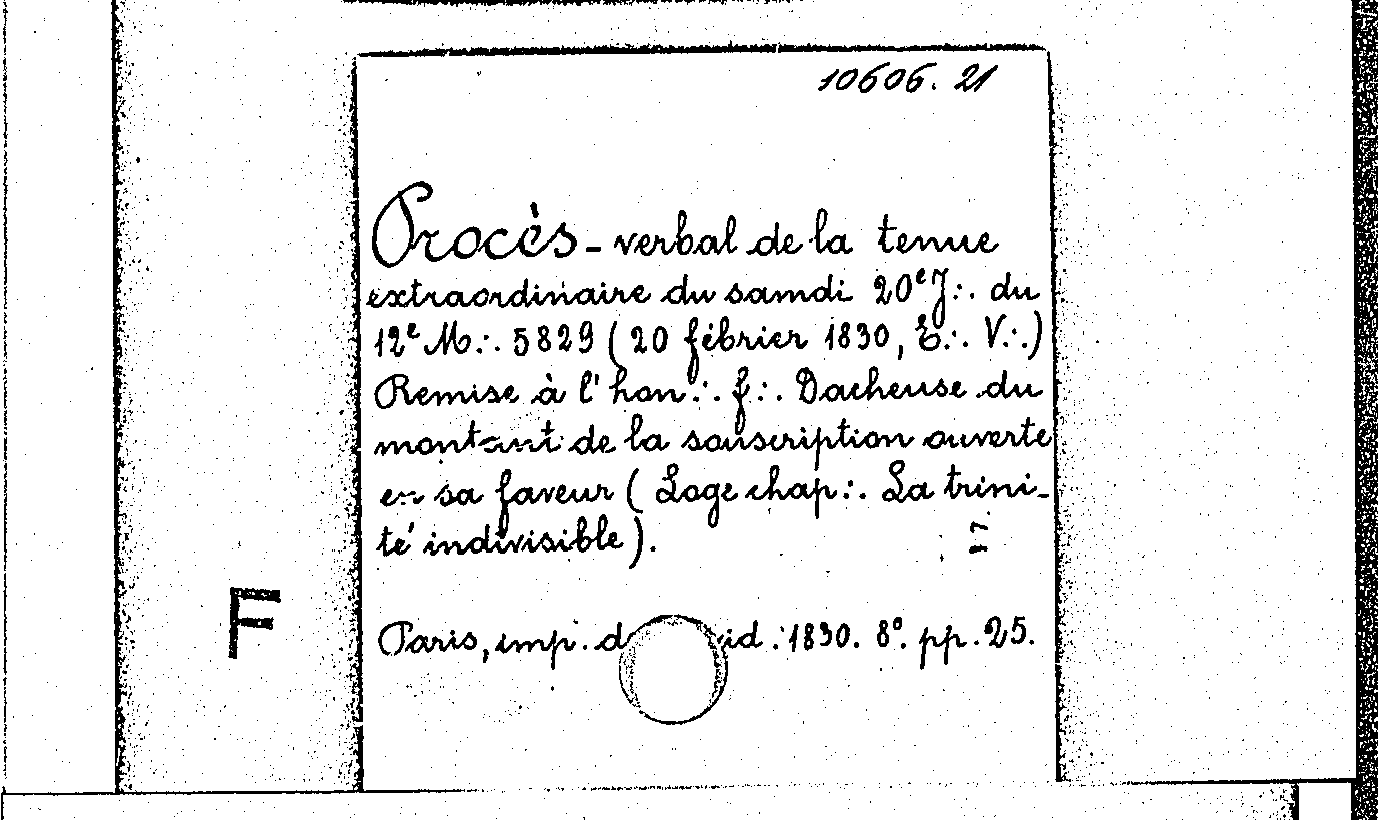 10606. 21
Procès-verbal de la tenue
extraordinaire du samdi 20e J∴ du
12e M∴ 5829 (20 fébrier 1830, E∴ V∴)
Remise à l'hon∴ f∴ Dacheuse du
montant de la souscription ouverte
en sa faveur (Loge chap∴ La trini-
té indivisible).
F
Paris, imp. 1830. 8°. pp. 25.